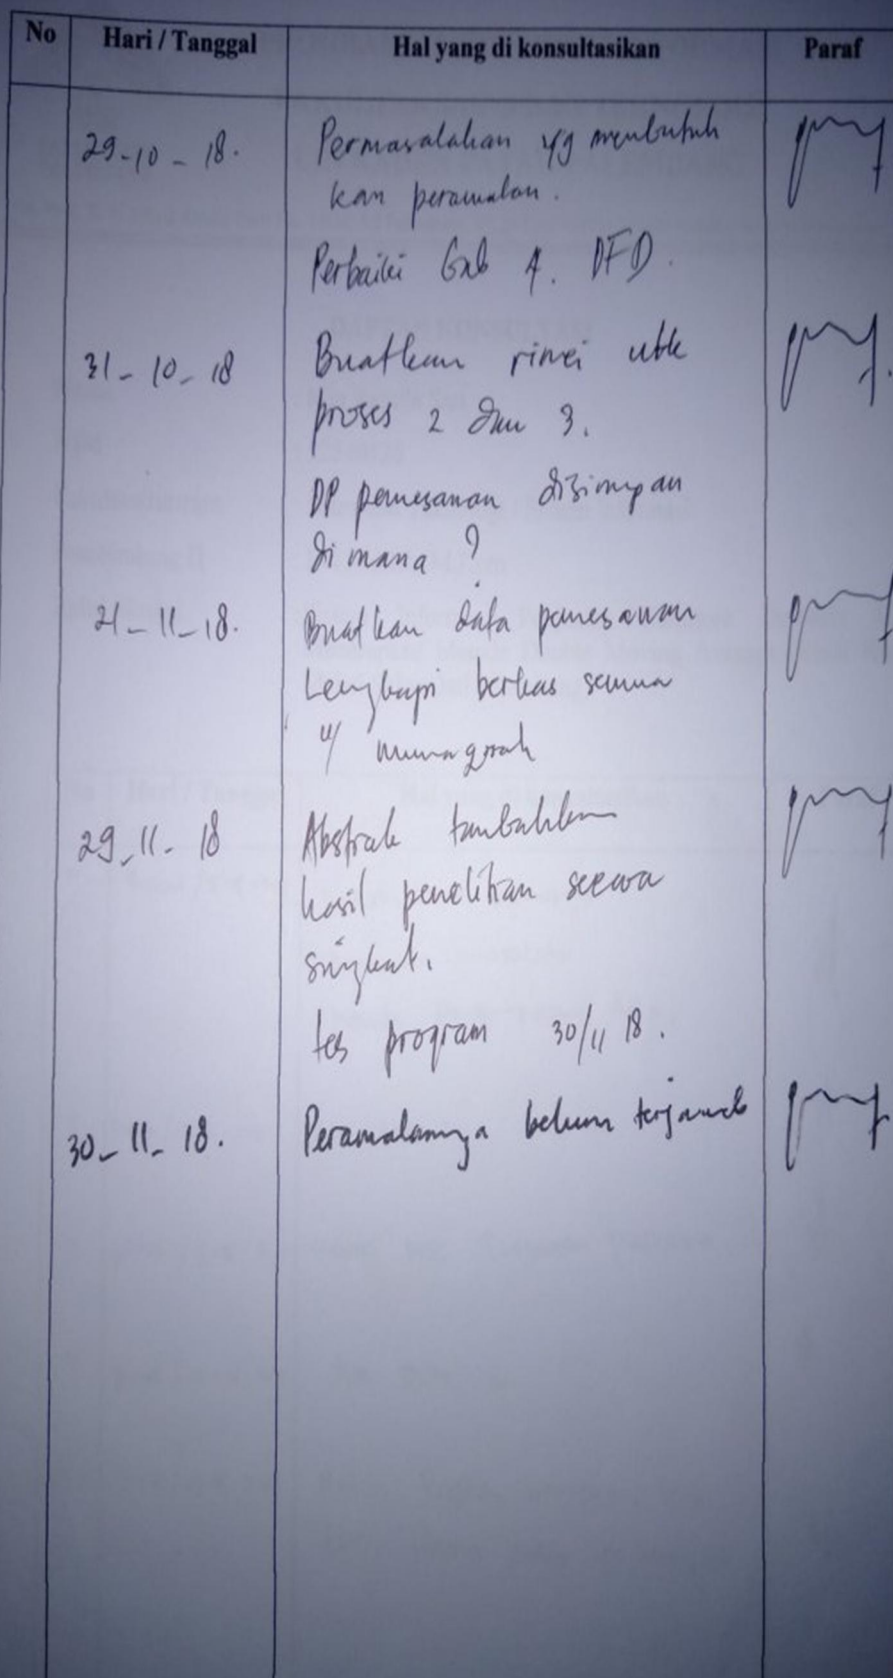 No Hari / Tanggal Hal yang di konsultasikan Paraf
29-10-18. Permasalahan yg membutuh
kan peramalan.
Perbaiki bab 4. DFD.
31-10-18 Buatkan rinci utk
proses 2 dan 3.
DP pemesanan disimpan
di mana?
21-11-18. Buatkan data pemesanan
Lengkapi berkas semua
u/ munaqosah
29-11-18 Abstrak tambahkan
hasil penelitian secara
singkat.
tes program 30/11 18.
30-11-18. Peramalannya belum terjawab